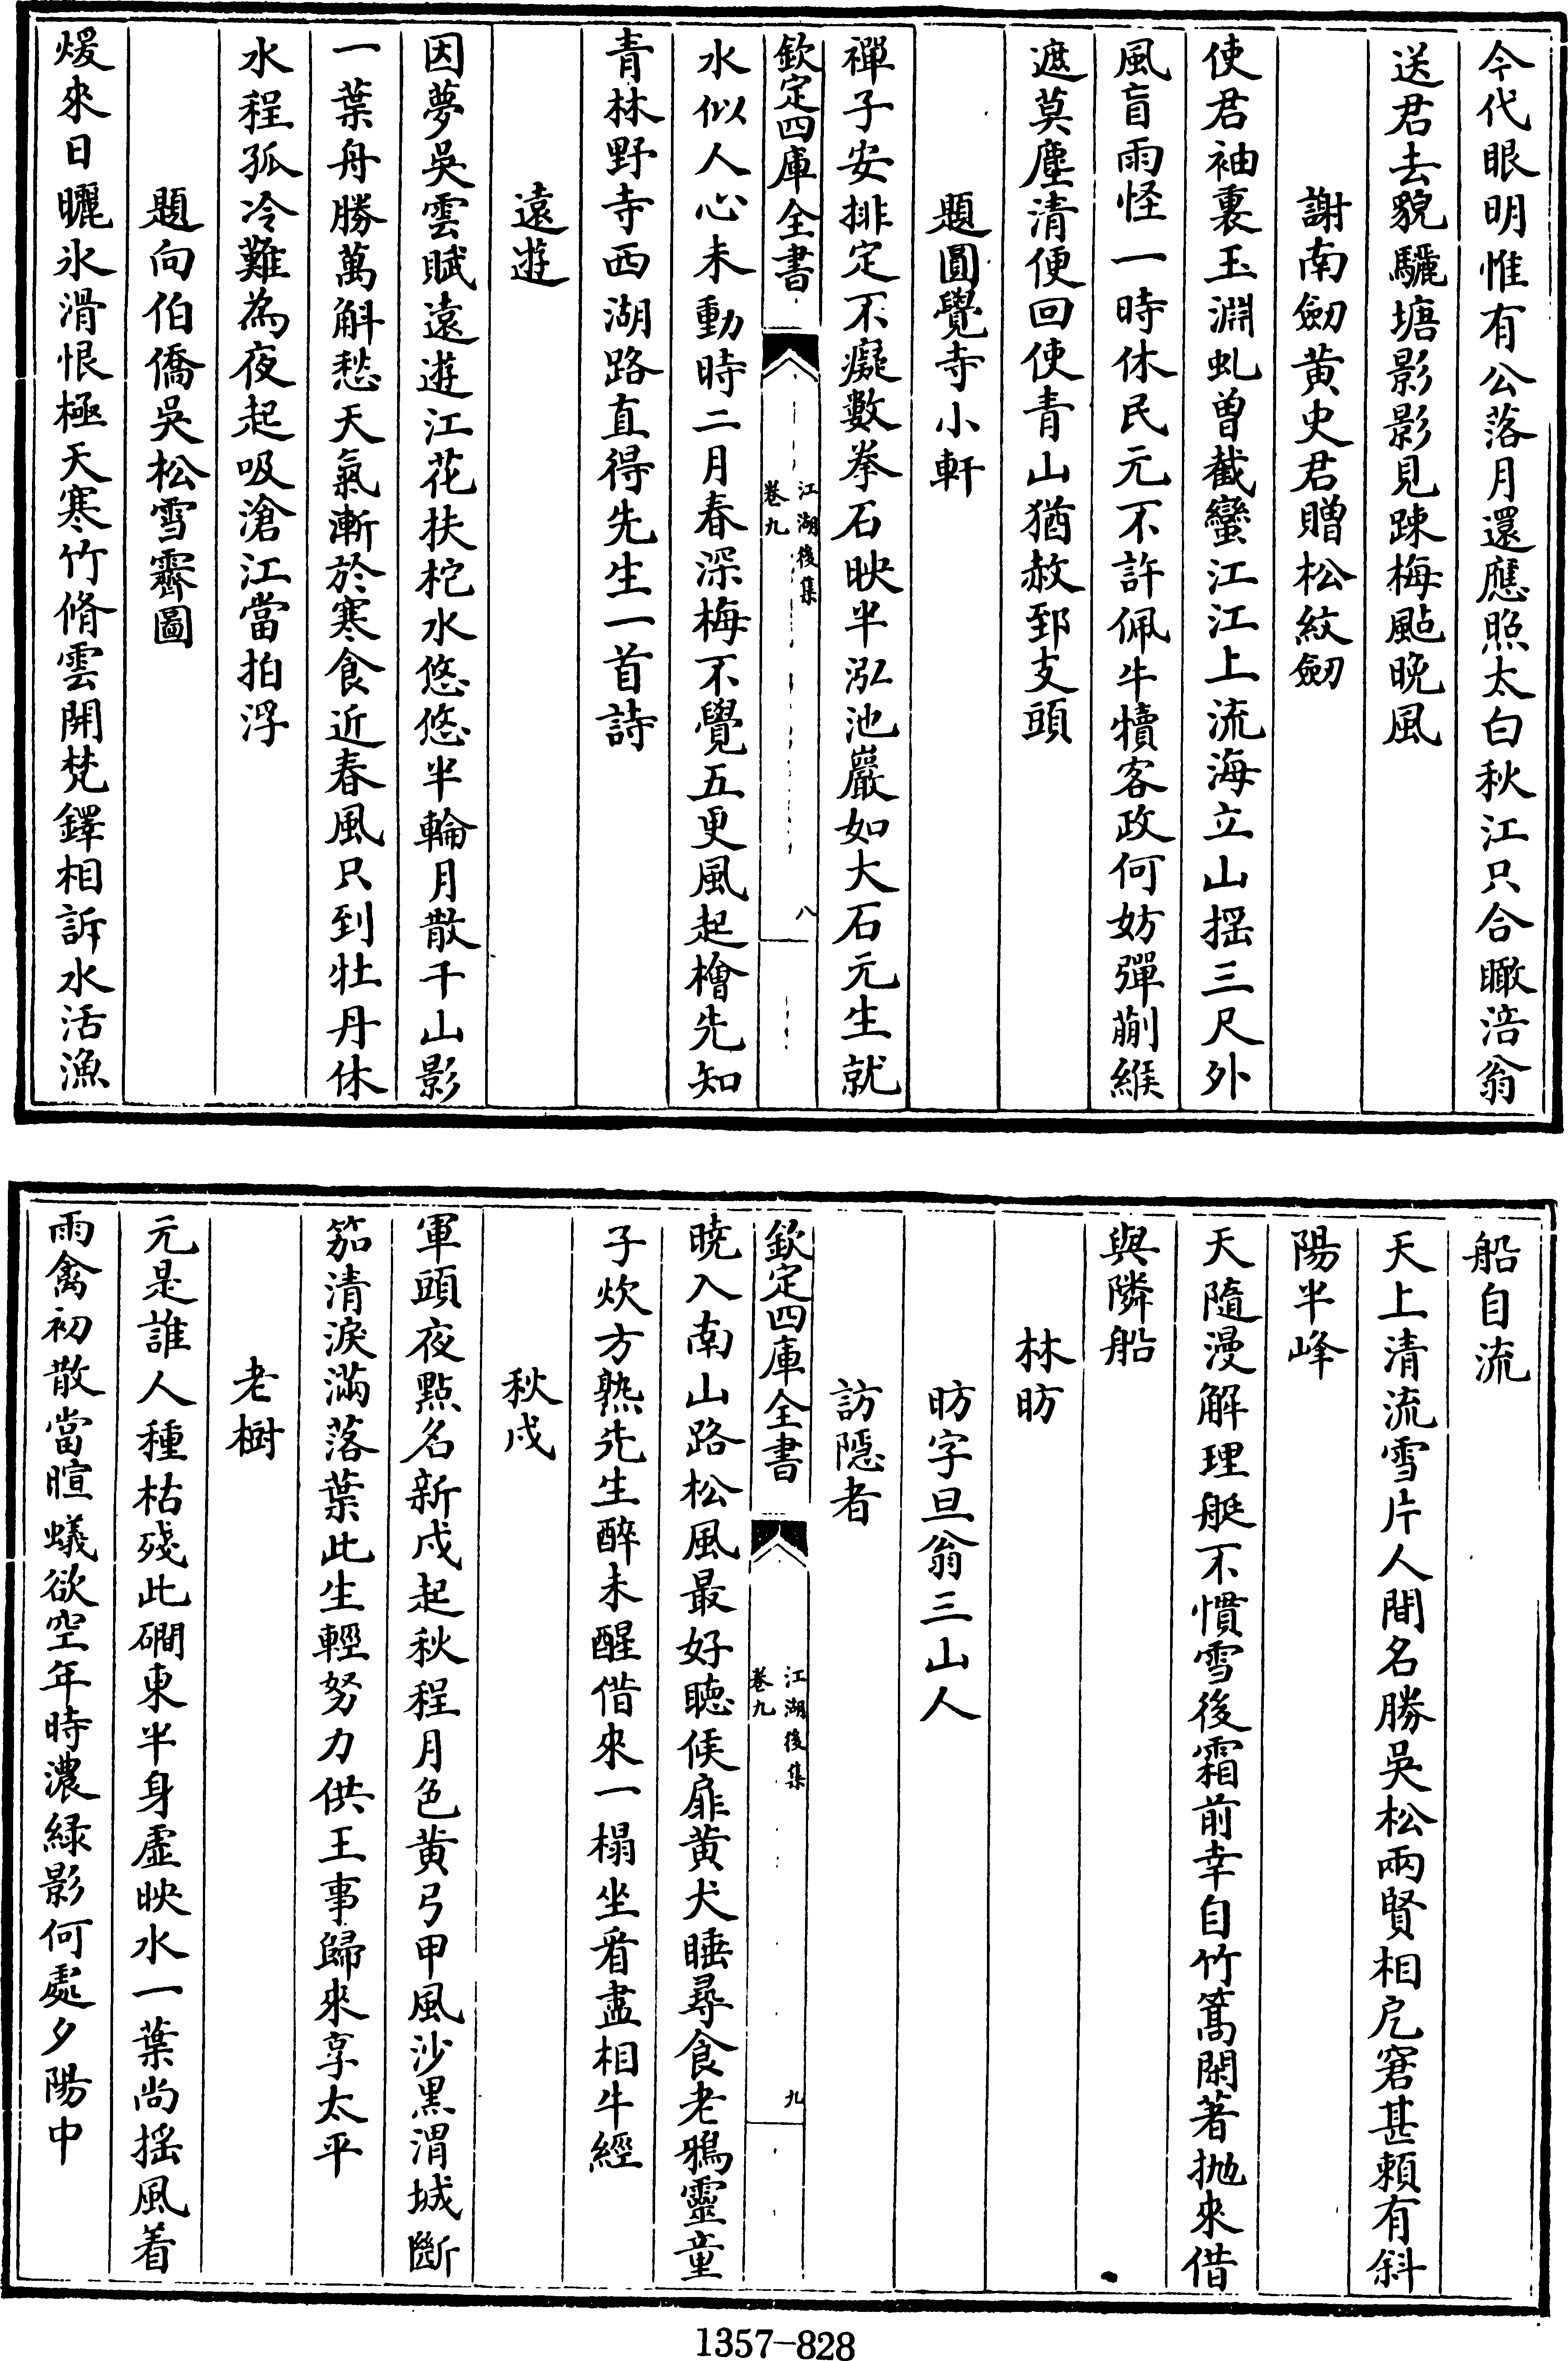 今代眼明惟有公落月還應照太白秋江只合瞰涪翁
送君去貌驪塘影影見踈梅颭晚風
謝南劒黄史君贈松紋劒
使君袖裏玉淵虬曽截蠻江江上流海立山揺三尺外
風盲雨怪一時休民元不許佩牛犢客政何妨彈蒯緱
遮莫塵清便回使青山猶赦郅支頭
題圓覺寺小軒
禪子安排定不癡數拳石映半泓池巖如大石元生就
欽定四庫全書
江湖後集
卷九
八
水似人心未動時二月春深梅不覺五更風起檜先知
青林野寺西湖路直得先生一首詩
遠遊
因夢吳雲賦遠遊江花扶柁水悠悠半輪月散千山影
一葉舟勝萬斛愁天氣漸於寒食近春風只到牡丹休
水程孤冷難為夜起吸滄江當拍浮
題向伯僑吳松雪霽圖
煖來日曬氷滑恨極天寒竹脩雲開梵鐸相訴水活漁
船自流
天上清流雪片人間名勝吳松兩賢相戹窘甚頼有斜
陽半峰
天隨漫解理艇不慣雪後霜前幸自竹篙閑著抛來借
與隣船
林昉
昉字旦翁三山人
訪隠者
欽定四庫全書
江湖後集
卷九
九
暁入南山路松風最好聴候扉黄犬睡尋食老鴉靈童
子炊方熟先生醉未醒借來一榻坐看盡相牛經
秋戍
軍頭夜點名新戍起秋程月色黄弓甲風沙黒渭城斷
笳清淚滿落葉此生輕努力供王事歸來享太平
老樹
元是誰人種枯殘此磵東半身虛映水一葉尚揺風着
雨禽初散當暄蟻欲空年時濃緑影何處夕陽中
1357-828